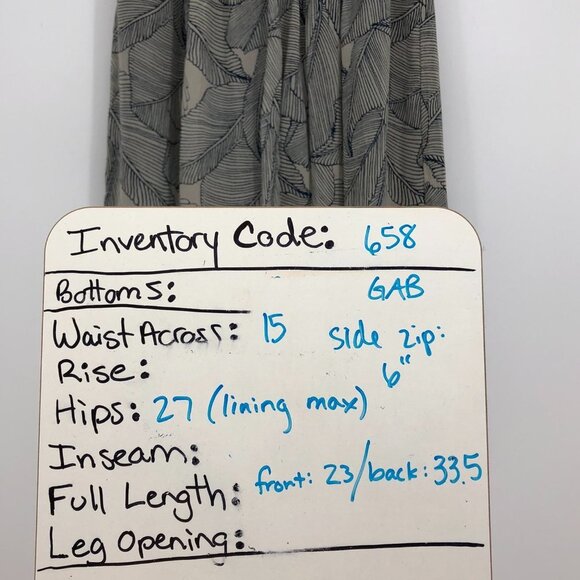 Inventory Code: 658
Bottoms: GAB
Waist Across: 15 side zip: 6"
Rise:
Hips: 27 (lining max)
Inseam:
Full Length: front: 23/back: 33.5
Leg Opening: